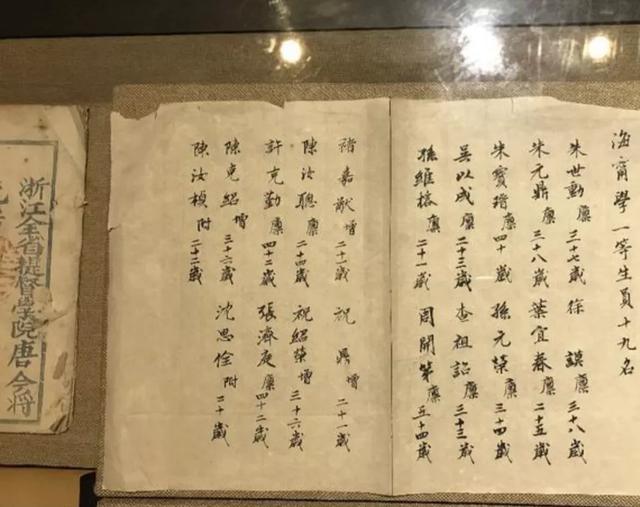 海甯學一等生員十九名
朱世勳 廪 三十七歲 徐謨 廪 三十八歲
朱元鼎 廪 三十八歲 葉宜春 廪 二十五歲
朱寶瑨 廪 四十歲 孫元榮 廪 三十四歲
吳以成 廪 二十三歲 查祖詒 廪 三十三歲
孫維榕 廪 二十一歲 周開第 廪 五十四歲
褚嘉猷 增 二十一歲 祝鼎 增 二十一歲
陳汝聰 廪 二十四歲 祝紹榮 增 三十六歲
許克勤 廪 四十二歲 張濟庚 廪 四十二歲
陳克紹 增 三十六歲 沈思佺 附 二十歲
陳汝楨 附 二十二歲
浙江全省提督學院唐 今將